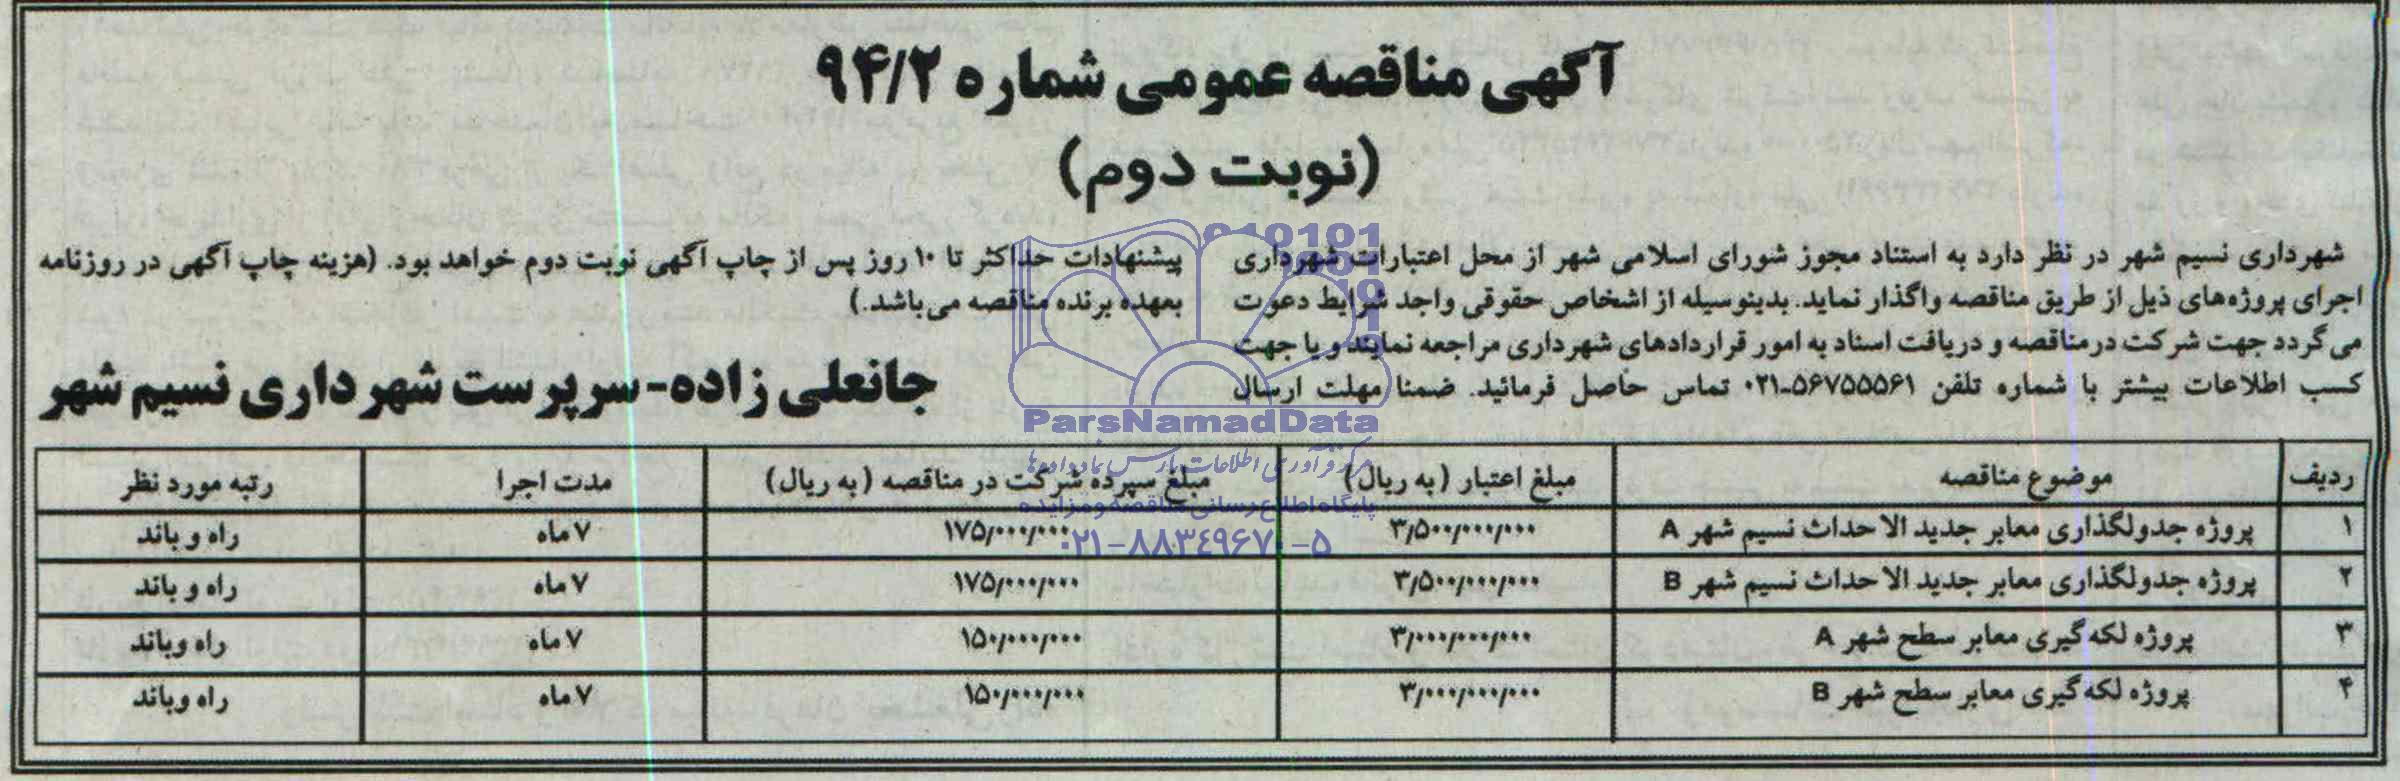 آگهی مناقصه عمومی شماره ۹۴/۲
(نوبت دوم)
شهرداری نسیم شهر در نظر دارد به استناد مجوز شورای اسلامی شهر از محل اعتبارات شهرداری
اجرای پروژه‌های ذیل از طریق مناقصه واگذار نماید. بدینوسیله از اشخاص حقوقی واجد شرایط دعوت
می گردد جهت شرکت در مناقصه و دریافت اسناد به امور قراردادهای شهرداری مراجعه نمایند و یا جهت
کسب اطلاعات بیشتر با شماره تلفن ۵۶۷۵۵۵۶۱-۰۲۱ تماس حاصل فرمائید. ضمنا مهلت ارسال
پیشنهادات حداکثر تا ۱۰ روز پس از چاپ آگهی نوبت دوم خواهد بود. (هزینه چاپ آگهی در روزنامه
بعهده برنده مناقصه می‌باشد.)
جانعلی زاده-سرپرست شهرداری نسیم شهر
ردیف موضوع مناقصه مبلغ اعتبار (به ریال) مبلغ سپرده شرکت در مناقصه (به ریال) مدت اجرا رتبه مورد نظر
۱ پروژه جدولگذاری معابر جدید الاحداث نسیم شهر A ۳/۵۰۰/۰۰۰/۰۰۰ ۱۷۵/۰۰۰/۰۰۰ ۷ ماه راه و باند
۲ پروژه جدولگذاری معابر جدید الاحداث نسیم شهر B ۳/۵۰۰/۰۰۰/۰۰۰ ۱۷۵/۰۰۰/۰۰۰ ۷ ماه راه و باند
۳ پروژه لکه گیری معابر سطح شهر A ۳/۰۰۰/۰۰۰/۰۰۰ ۱۵۰/۰۰۰/۰۰۰ ۷ ماه راه وباند
۴ پروژه لکه گیری معابر سطح شهر B ۳/۰۰۰/۰۰۰/۰۰۰ ۱۵۰/۰۰۰/۰۰۰ ۷ ماه راه وباند
ParsNamadData
مرکز فرآوری اطلاعات پارس نماد داده‌ها
پایگاه اطلاع رسانی مناقصه و مزایده
۰۲۱-۸۸۳۴۹۶۷۰-۵